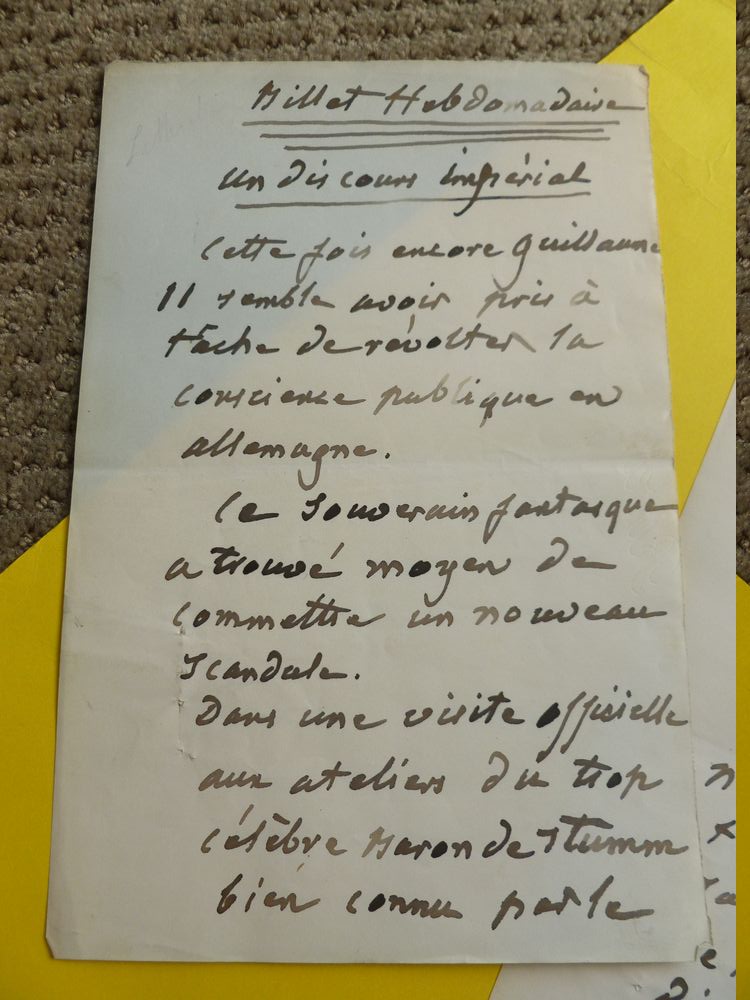 Billet Hebdomadaire
un discours impérial
Cette fois encore Guillaume
II semble avoir pris à
tâche de révolter la
conscience publique en
allemagne.
Ce souverain fantasque
a trouvé moyen de
commettre un nouveau
scandale.
Dans une visite officielle
aux ateliers du trop
célèbre Baron de Stumm
bien connu par le